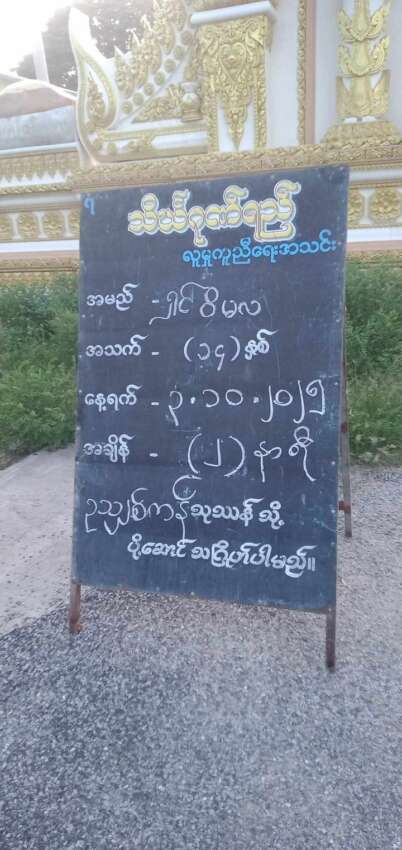 သိင်္ဃဂုဏ်ရည်
လူမှုကူညီရေးအသင်း
အမည် - ရှင်ဝိမလ
အသက် - (၁၄) နှစ်
နေ့ရက် - ၃.၁၀.၂၀၂၅
အချိန် - (၂) နာရီ
သုဿန် သို့
ပို့ဆောင် သဂြိုဟ်ပါမည်။